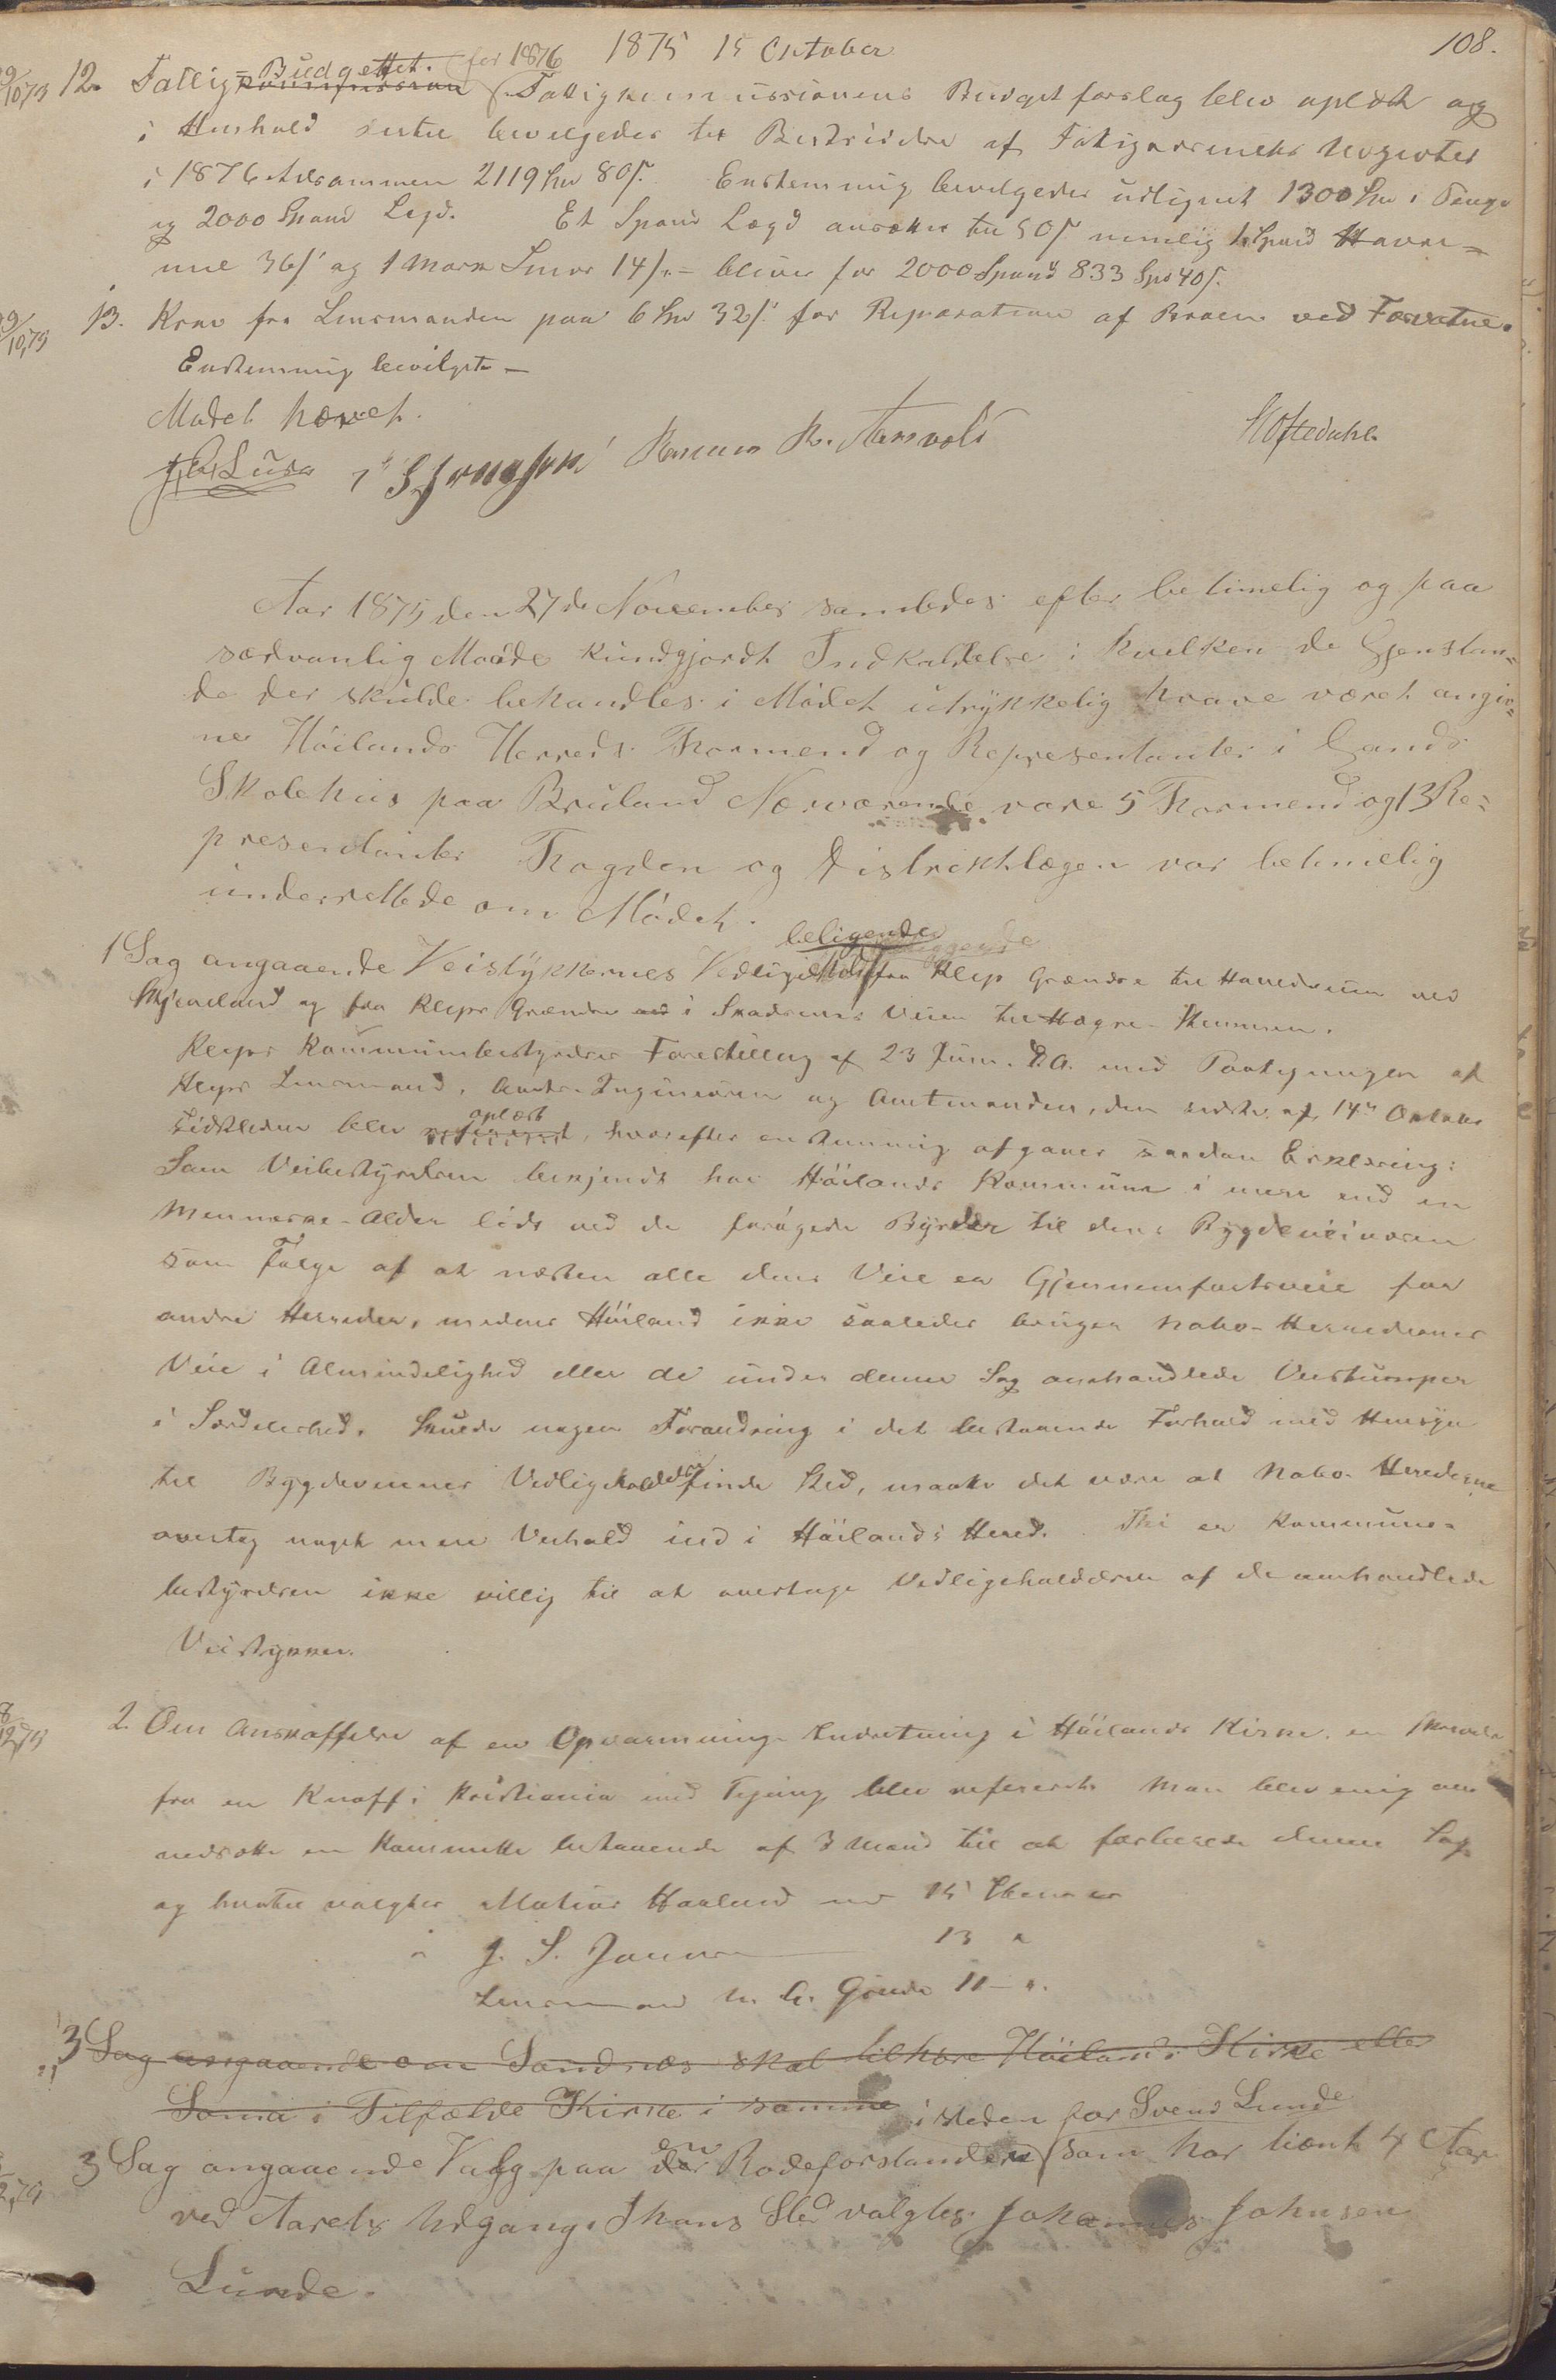 1875 15 October
108.
29/10,75 12. Fattig=Budgettet. for 1876 Fattigkommissionens Budgetforslag blev oplæst og
i Henhold dertil bevilgedes til Bestridelse af Fattigvæsenets Udgivter
i 1876 tilsammen 2119 Spd 80 s. Enstemmig bevilgedes udlignet 1300 Spd i Penge
og 2000 Spand Legd. Et Spand Lægd ansættes til 50 s. nemlig 1 Spand Havre=
mel 36 s og 1 Mark Smør 14 s. = bliver for 2000 Spand 833 Spd 40 s.
29/10,75 13. Krav fra Lensmanden paa 6 Spd 32 s. for Reparation af Broen ved Forvatne.
Enstemmig bevilget –
Mødet hævet.
Rasmus R. Aarsvold
Hoftedahl
Aar 1875 den 27de November samledes efter betimelig og paa
sædvanlig Maade kundgjordt Indkaldelse i hvilken de Gjenstan=
de der skulde behandles i Mødet utrykkelig have været angiv=
ne Høilands Herreds Formend og Representanter i Gands
Skolehus paa Brueland Nærværende vare 5 Formend og 13 Re=
presentanter Fogden og Distriktslægen var betimelig
underrettede om Mødet.
1 Sag angaaende Veistykkernes Vedligehold beligende fra Klep Grændse til Hovedveien ved
Skjæveland og fra Kleps Grændse i Veien til Hogre-
Kleps Kommunebestyrelses Forestilling af 23 Juni d.A. med Paategninger af
Kleps Lensmand, Amts-Ingeniøren og Amtmanden, den sidste af 14de Oktober
sidstleden blev oplæst, hvorefter enstemmig afgaves saadan Erklæring:
Som Veibestyrelsen bekjendt har Høilands Kommune i mere end en
Menneske-Alder lidt ved de forøgede Byrder til dens Bygdeveivæsen
som Følge af at næsten alle dens Veie er Gjennemfartsveie for
andre Herreder, medens Høiland ikke saaledes bruger Nabo-Herredernes
Veie i Almindelighed eller de under denne Sag omhandlede Veistumper
i Særdeleshed. Skulde nogen Forandring i det bestaaende Forhold med Hensyn
til Bygdeveienes Vedligeholdelse finde Sted, maatte det være at Nabo-Herederne
overtog noget mere Veihold ind i Høilands Hered. Thi er Kommune=
bestyrelsen ikke villig til at overtage Vedligeholdelsen af de omhandlede
Veistykker.
8/12,75 2. Om Anskaffelse af en Opvarmnings Indretning i Høilands Kirke. en Skrivelse
fra en Knoff i Kristiania med Tegning blev refereret. Man blev enig om
nedsætte en Kommitte bestaaende af 3 Mand til at forberede denne Sag
og hvortil valgtes Matias Haaland med 15 Stemmer
" J. S. Jonsen 13 "
Lensmand Grude 11 – ".
3 Sag angaaende om Sandnæs skal tilhøre Høilands Kirke eller
Soma i Tilfælde Kirke i samme
8/12,75 3 Sag angaaende Valg paa en Rodeforstander i steden for Svend Lunde som har tient 4 Aar
ved Aarets Udgang. I hans Sted valgtes Johannes Johnsen
Lunde.